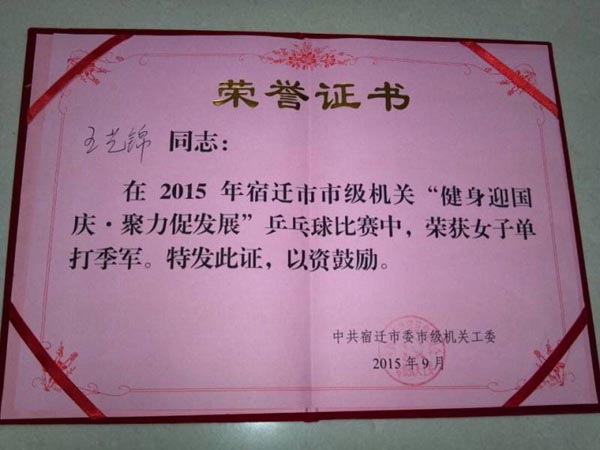 荣誉证书
王艺锦 同志：
在 2015 年宿迁市市级机关“健身迎国
庆·聚力促发展”乒乓球比赛中，荣获女子单
打季军。特发此证，以资鼓励。
中共宿迁市委市级机关工委
2015 年 9 月